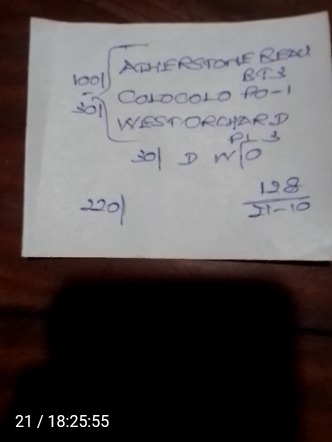 100/ ATHERSTONE BEAU
BT3
30/ COLOCOLO PO-1
WEST ORCHARD
PL 3
30/ D W/O
220/
128
21-10
21 / 18:25:55